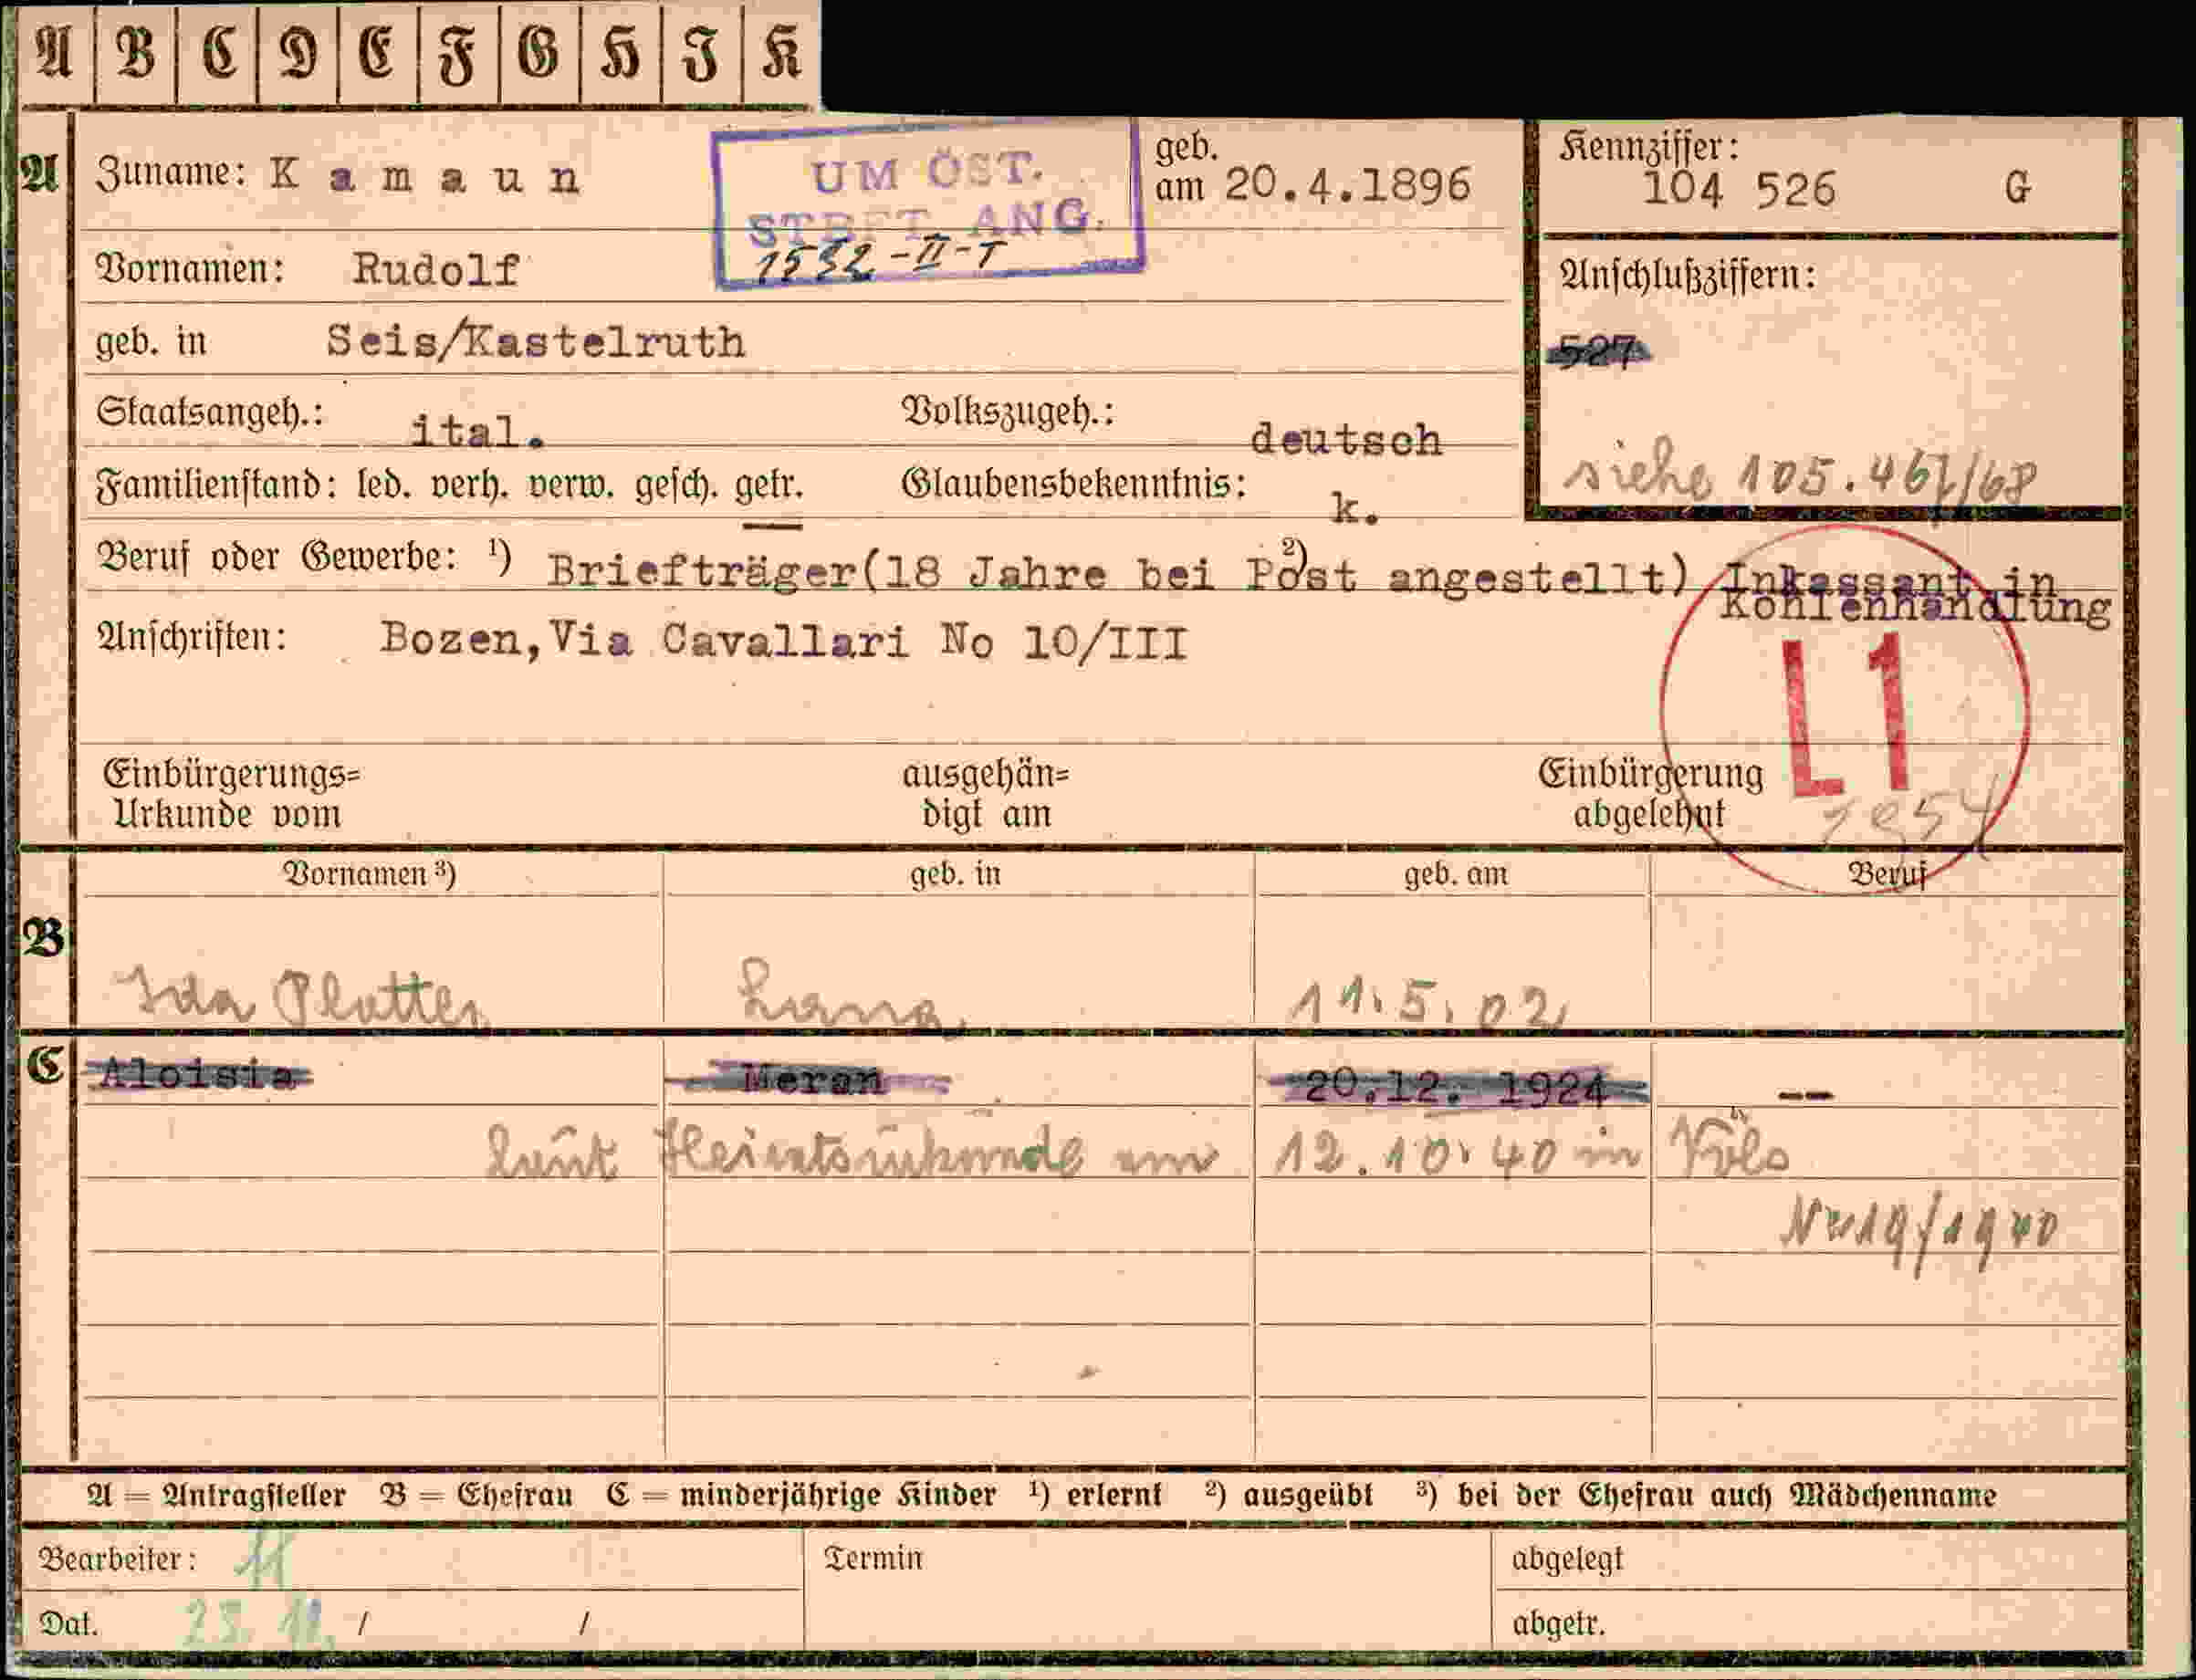 A B C D E F G H I K
A Zuname: K a m a u n
UM ÖST.
STBFT. ANG.
1532-II-T
geb.
am 20.4.1896
Kennziffer:
104 526 G
Vornamen: Rudolf
Anschlußziffern:
527
siehe 105.467/68
geb. in Seis/Kastelruth
Staatsangeh.: ital. Volkszugeh.: deutsch
Familienstand: led. verh. verw. gesch. getr. Glaubensbekenntnis: k.
Beruf oder Gewerbe: ¹) Briefträger(18 Jahre bei Post angestellt) ²) Inkassant in
Kohlenhandlung
Anschriften: Bozen,Via Cavallari No 10/III
L1
Einbürgerungs=
Urkunde vom
ausgehän=
digt am
Einbürgerung
abgelehnt
1954
Vornamen ³) geb. in geb. am Beruf
B Ida Platter Lana 11.5.02
C Aloisia Meran 20.12. 1924 --
laut Heiratsurkunde am 12.10.40 in Völs
Nr 19/1940
A = Antragsteller B = Ehefrau C = minderjährige Kinder ¹) erlernt ²) ausgeübt ³) bei der Ehefrau auch Mädchenname
Bearbeiter: Termin abgelegt
Dat. / / abgetr.